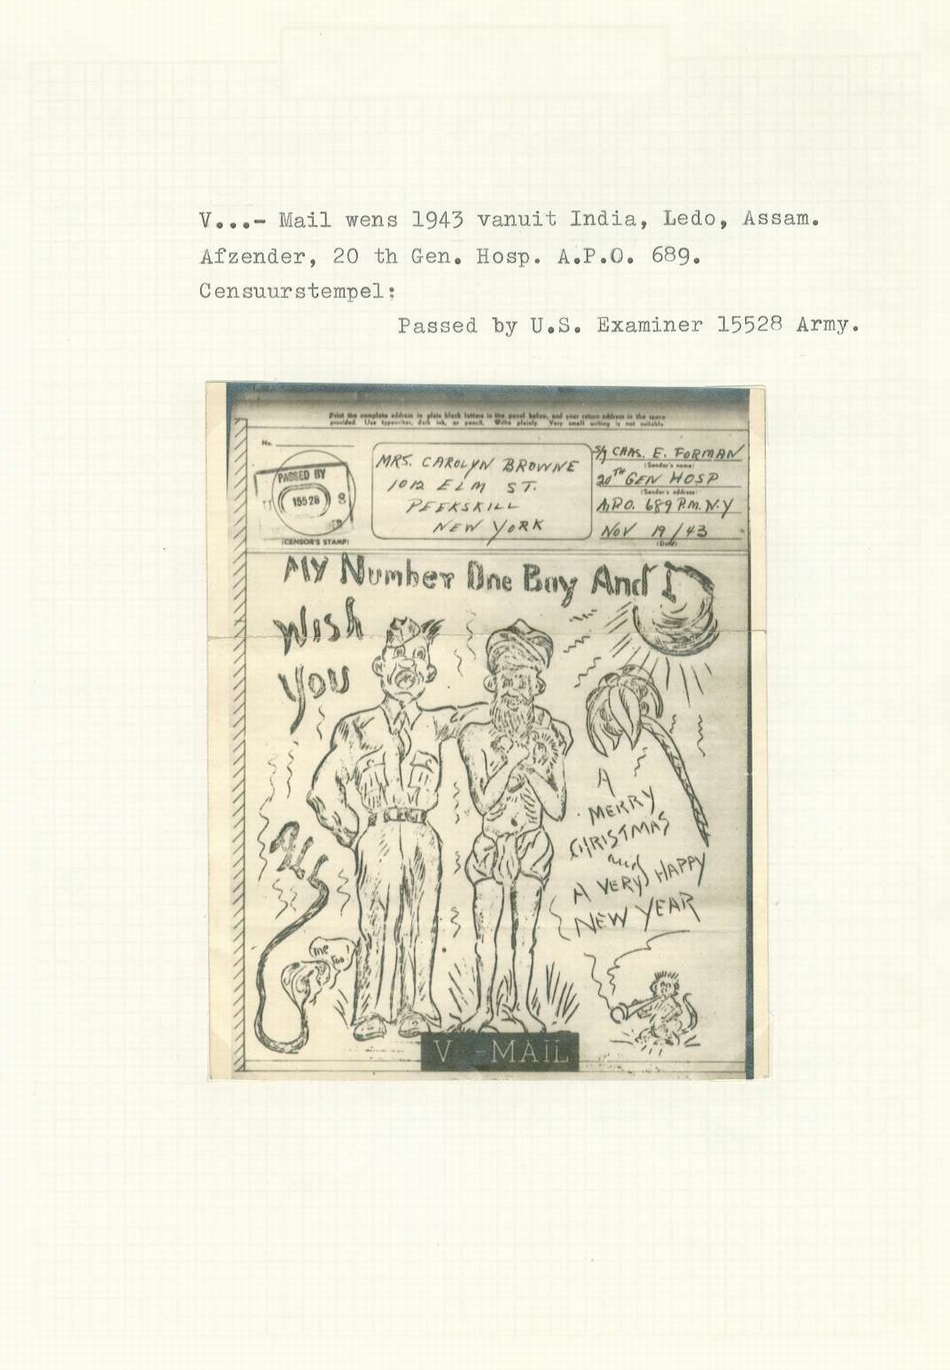 V...- Mail wens 1943 vanuit India, Ledo, Assam.
Afzender, 20 th Gen. Hosp. A.P.O. 689.
Censuurstempel:
Passed by U.S. Examiner 15528 Army.
Print the complete address in plain black letters in the panel below, and your return address in the space
provided. Use typewriter, dark ink, or pencil. Write plainly. Very small writing is not suitable.
No.
PASSED BY
15528
(CENSOR'S STAMP)
MRS. CAROLYN BROWNE
1012 ELM ST.
PEEKSKILL
NEW YORK
CHAS. E. FORMAN
(Sender's name)
20TH GEN HOSP
(Sender's address)
A.P.O. 689 P.M. N.Y
NOV 19/43
(Date)
My Number One Boy And I
Wish
You
All
me too
A
MERRY
CHRISTMAS
and
A VERY HAPPY
NEW YEAR
V - MAIL